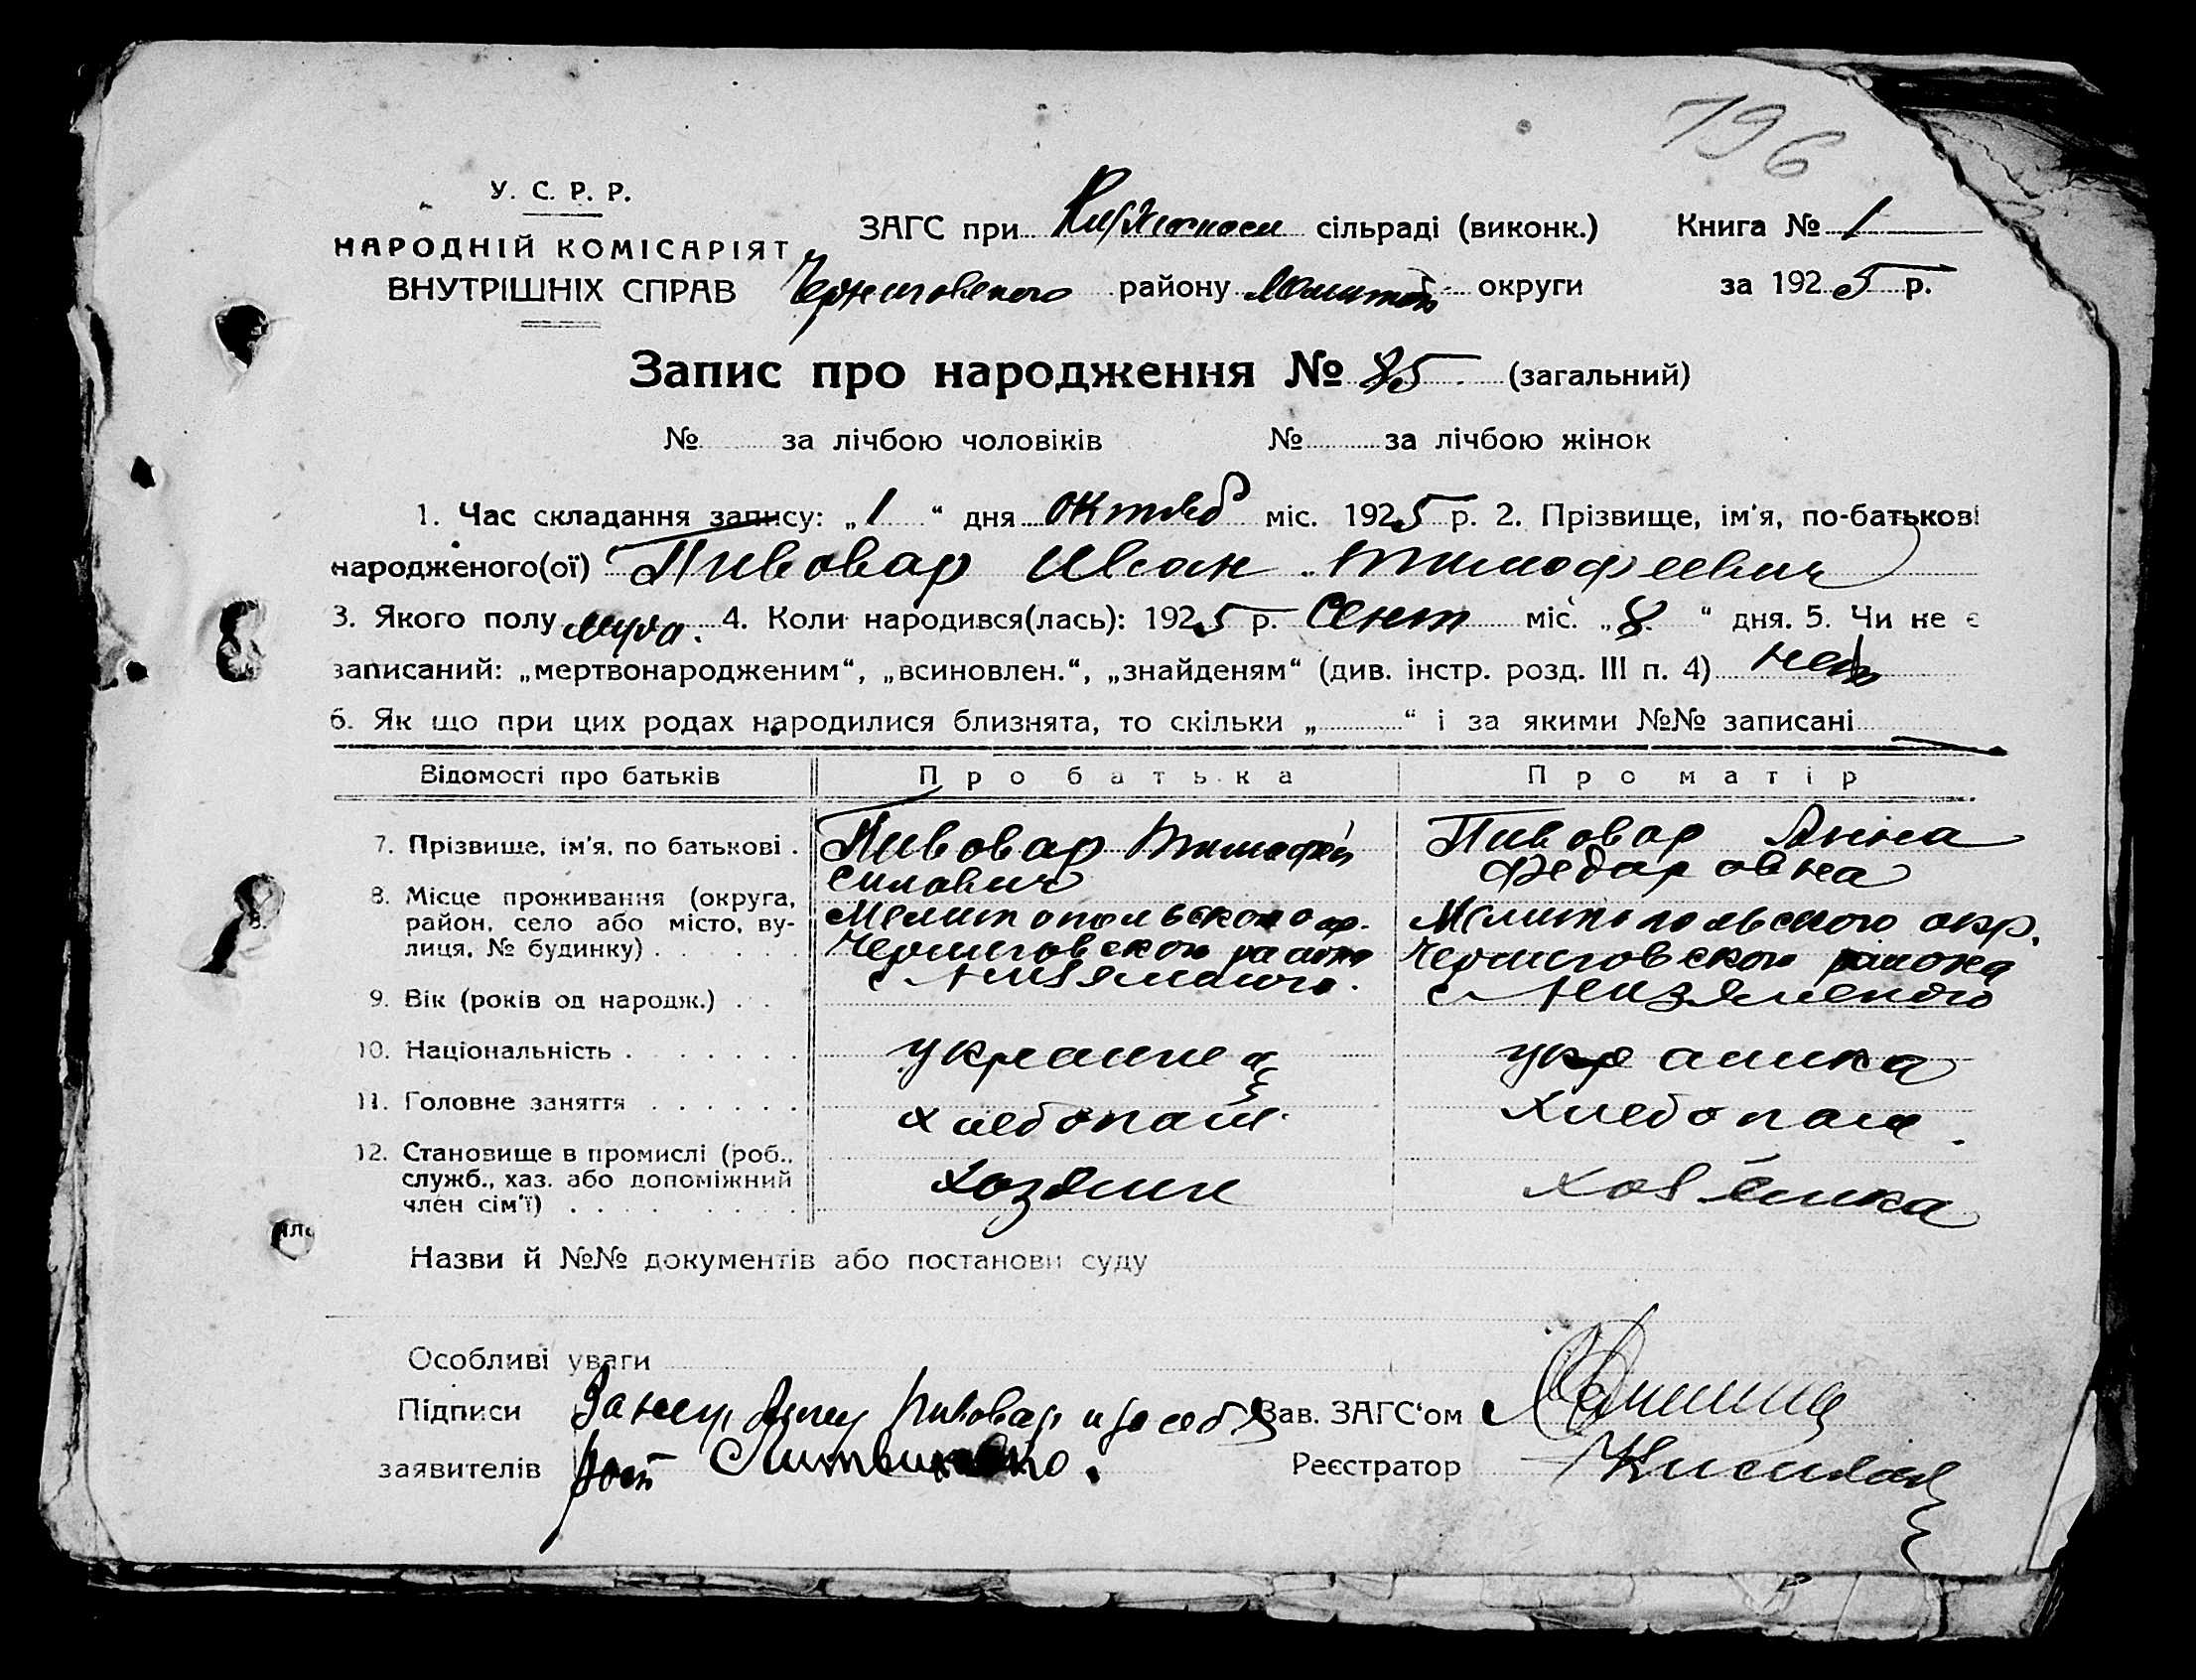 196
У. С. Р. Р.
НАРОДНІЙ КОМІСАРІЯТ
ВНУТРІШНІХ СПРАВ
ЗАГС при сільраді (виконк.) Книга № 1
Черниговского району Мелитоп округи за 1925 р.
Запис про народження № 85 (загальний)
№ за лічбою чоловіків № за лічбою жінок
1. Час складання запису: „1“ дня октяб міс. 1925 р. 2. Прізвище, ім'я, по-батькові
народженого(ої) Пивовар Иван Тимофеевич
3. Якого полу 4. Коли народився(лась): 1925 р. Сент міс. „8“ дня. 5. Чи не є
записаний: „мертвонародженим“, „всиновлен.“, „знайденям“ (див. інстр. розд. III п. 4) нет
6. Як що при цих родах народилися близнята, то скільки „ “ і за якими №№ записані
Відомості про батьків Про батька Про матір
7. Прізвище, ім'я, по батькові . Пивовар Тимофей Пивовар Анна
силович Федаровна
8. Місце проживання (округа, район, село або місто, вулиця, № будинку) Мелитопольского окр. Мелитопольского окр.
Черниговского района Черниговского района
с
9. Вік (років од народж.)
10. Національність украинец украинка
11. Головне заняття хлебопаш. хлебопаш.
12. Становище в промислі (роб., служб., хаз. або допоміжний член сім'ї) хозяин хозяйка
Назви й №№ документів або постанови суду
Особливі уваги
Підписи Пивовар и за себя Зав. ЗАГС‘ом
заявителів Литвиненко. Реєстратор